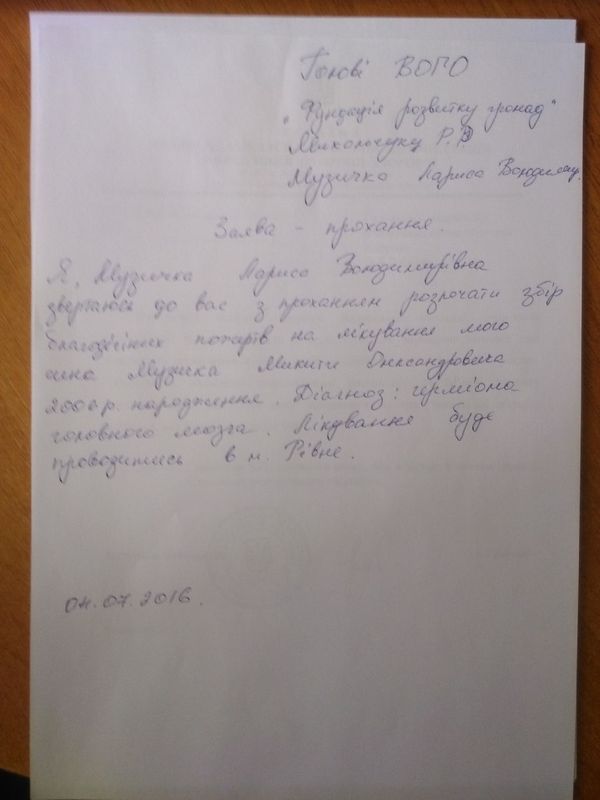 Голові ВОГО
„Фундація розвитку громад"
Михальчуку Р.Р
Музичко Лариса Володимир.
Заява - прохання.
Я, Музичка Лариса Володимирівна
звертаюсь до вас з проханням розпочати збір
благодійних пожертв на лікування мого
сина Музичка Микити Олександровича
2006 р. народження. Діагноз: герміома
головного мозга. Лікування буде
проводитись в м. Рівне.
04.07.2016.